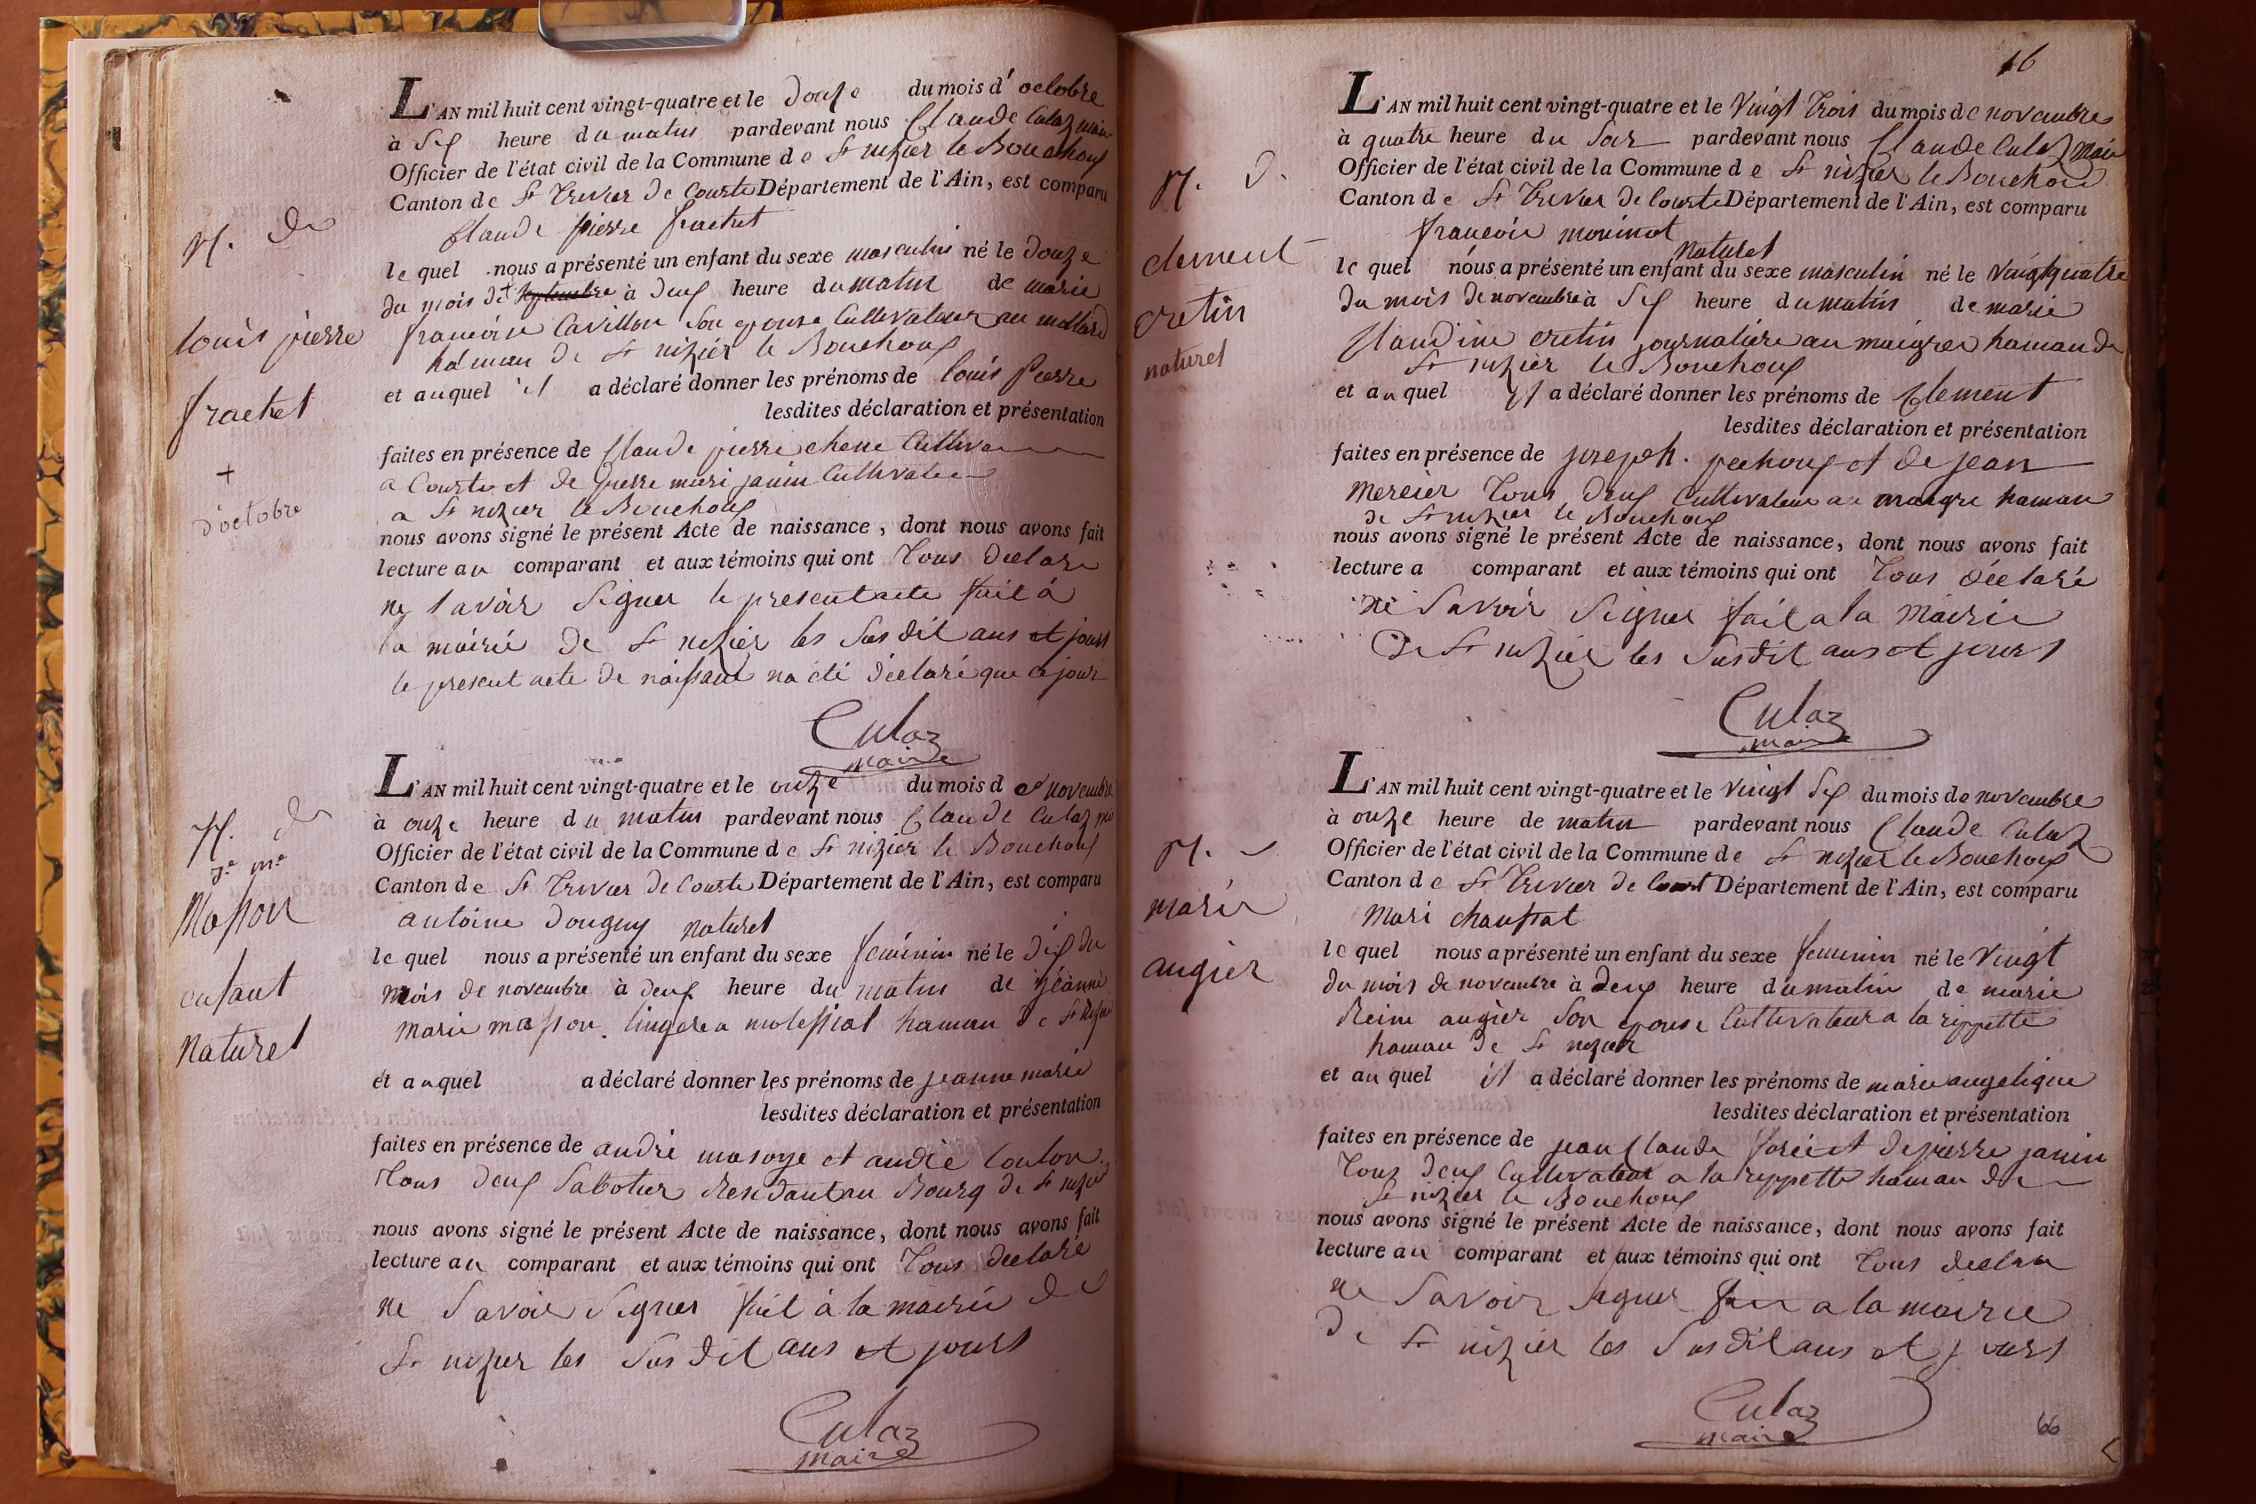 L'AN mil huit cent vingt-quatre et le douze du mois d'octobre
à Six heure du matin pardevant nous Claude Culaz maire
Officier de l'état civil de la Commune de St nizier le Bouchoux
Canton de St Trivier de Courte Département de l'Ain, est comparu
Claude pierre frachet
lequel nous a présenté un enfant du sexe masculin né le douze
du mois de + septembre à deux heure du matin de marie
francoise Cavillon Son epouse Cultivateur au mollard
hamau de St nizier le Bouchoux
et auquel il a déclaré donner les prénoms de louis Pierre
lesdites déclaration et présentation
faites en présence de Claude pierre chene Cultiva
a Courte et de pierre mari janin Cultivateur
a St nizier le Bouchoux
nous avons signé le présent Acte de naissance, dont nous avons fait
lecture au comparant et aux témoins qui ont Tous declare
ne Savoir Signer le present acte fait à
la mairie de St nizier les Susdit ans et jours
le present acte de naissance na été déclaré que ce jour
Culaz
maire
N. de
louis pierre
frachet
+
d'octobre
L'AN mil huit cent vingt-quatre et le onze du mois de novembre
à onze heure du matin pardevant nous Claude Culaz
Officier de l'état civil de la Commune de St nizier le Bouchoux
Canton de St Trivier de Courte Département de l'Ain, est comparu
antoine Donguy
naturel
lequel nous a présenté un enfant du sexe feminin né le dix du
mois de novembre à deux heure du matin de jéanne
marie masson lingere a molessiat hamau de St nizier
et auquel a déclaré donner les prénoms de jeanne marie
lesdites déclaration et présentation
faites en présence de andré masoye et andré Coulon
Tous deux Sabotier Residant au Bourg de St nizier
nous avons signé le présent Acte de naissance, dont nous avons fait
lecture au comparant et aux témoins qui ont Tous declaré
ne Savoir Signer fait à la mairie de
St nizier les Susdit ans et jours
Culaz
maire
N. de
je me
Masson
enfant
naturel
16
L'AN mil huit cent vingt-quatre et le Vingt Trois du mois de novembre
à quatre heure du Soir pardevant nous Claude Culaz Maire
Officier de l'état civil de la Commune de St nizier le Bouchoux
Canton de St Trivier de Courte Département de l'Ain, est comparu
francois moninot
naturel
lequel nous a présenté un enfant du sexe masculin né le vingtquatre
du mois de novembre à Six heure du matin de marie
Claudine cretin journaliere au maigre hamau de
St nizier le Bouchoux
et auquel il a déclaré donner les prénoms de Clement
lesdites déclaration et présentation
faites en présence de joseph pechoux et de jean
Mercier Tous deux Cultivateur au maigre hamau
de St nizier le Bouchoux
nous avons signé le présent Acte de naissance, dont nous avons fait
lecture a comparant et aux témoins qui ont Tous déclaré
ne Savoir Signer fait a la Mairie
De St nizier les Susdit ans et jours
Culaz
maire
N. D.
clement
cretin
naturel
L'AN mil huit cent vingt-quatre et le vingt Six du mois de novembre
à onze heure de matin pardevant nous Claude Culaz
Officier de l'état civil de la Commune de St nizier le Bouchoux
Canton de St Trivier de Court Département de l'Ain, est comparu
Mari chaussat
lequel nous a présenté un enfant du sexe feminin né le Vingt
du mois de novembre à Deux heure du matin de marie
Reine augier Son epouse Cultivateur a la rippette
hamau de St nizier
et au quel il a déclaré donner les prénoms de marie angelique
lesdites déclaration et présentation
faites en présence de jean Claude foréi et de pierre janin
Tous deux Cultivateur a la rippette hamau de
St nizier le Bouchoux
nous avons signé le présent Acte de naissance, dont nous avons fait
lecture au comparant et aux témoins qui ont Tous declare
ne Savoir Signer fait a la mairie
de St nizier les Susdit ans et jours
Culaz
maire
N.
marie
augier
66